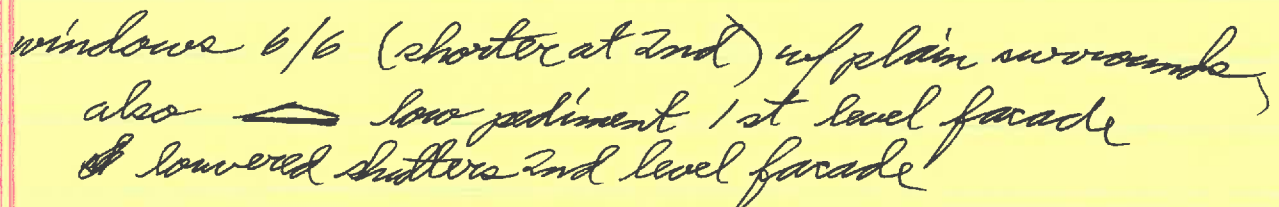 windows 6/6 (shorter at 2nd) w/ plain surrounds,
also low pediment 1st level facade
& louvered shutters 2nd level facade